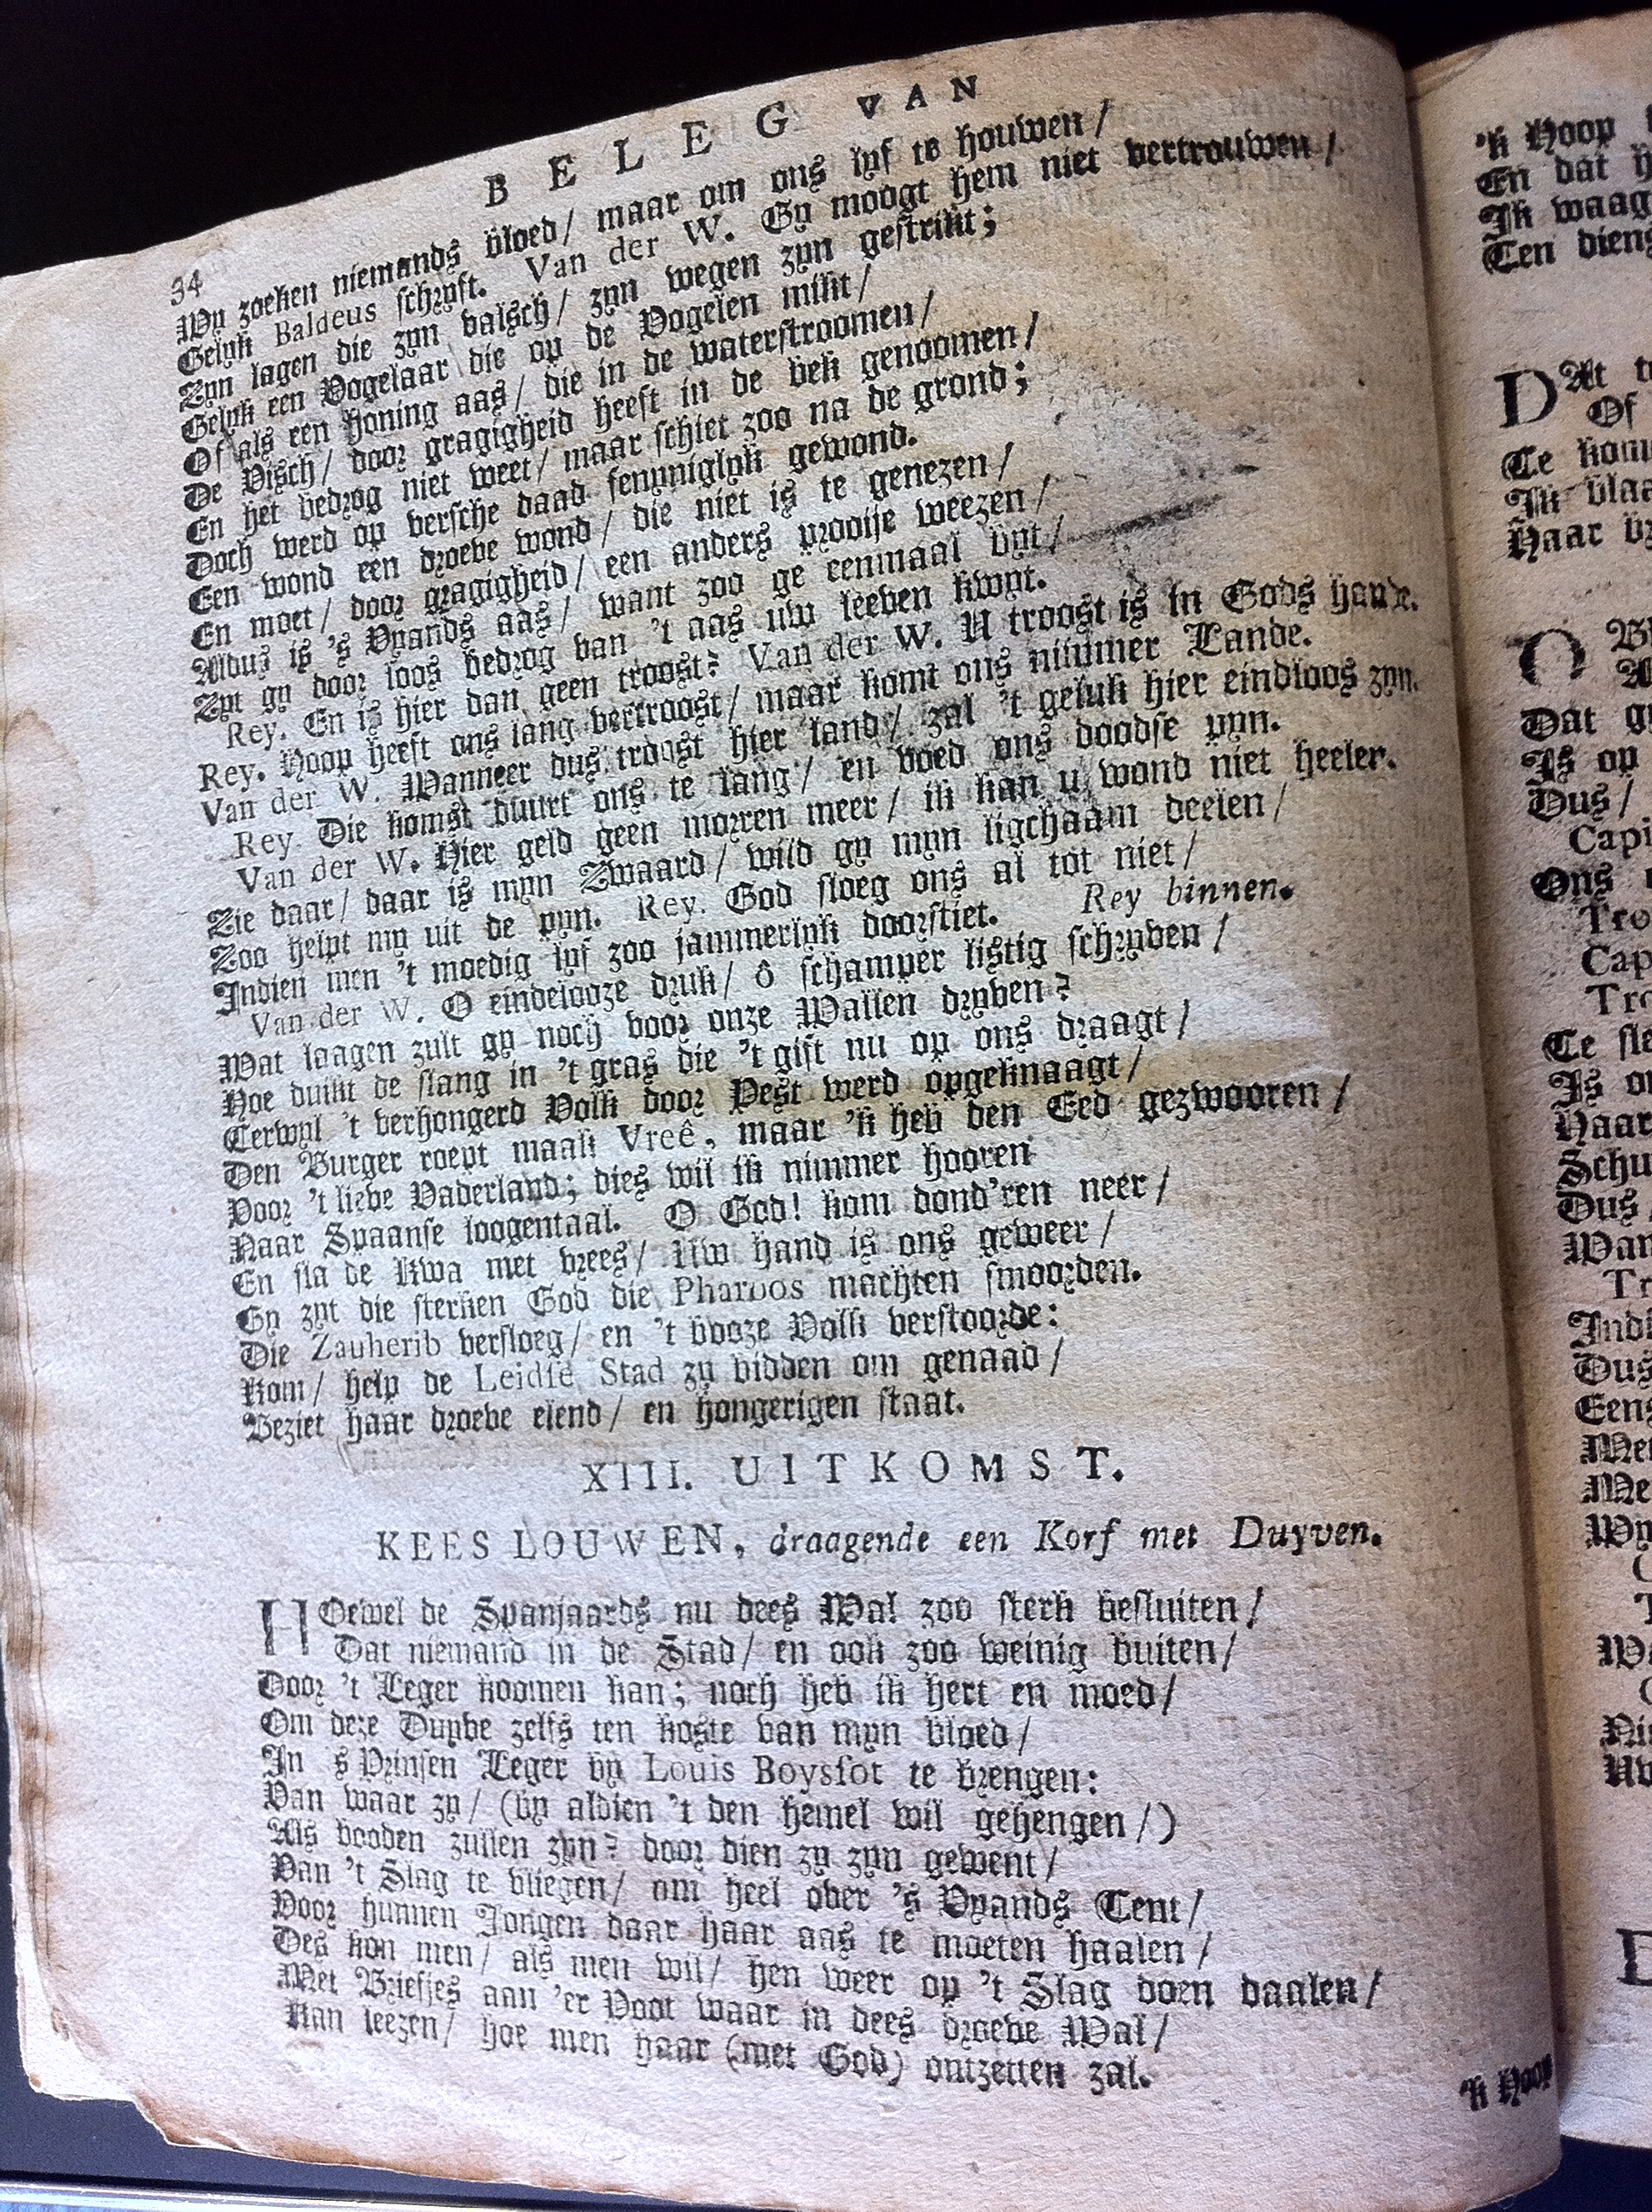 34
BELEG VAN
Wy zoeken niemands bloed/ maar om ons lyf te houwen/
Gelyk Baldeus schryft. Van der W. Gy moogt hem niet vertrouwen/
Zyn lagen die zyn valsch/ zyn wegen zyn gestrikt;
Gelyk een Vogelaar die op de Vogelen mikt/
Of als een honing aas/ die in de waterstroomen/
De Visch/ door gragigheid heeft in de bek genoomen/
En het bedrog niet weet/ maar schiet zoo na de grond;
Doch werd op versche daad fenyniglyk gewond.
Een wond een droeve wond/ die niet is te genezen/
En moet/ door gragigheid/ een anders prooije weezen/
Aldus is 's Vyands aas/ want zoo ge eenmaal byt/
Zyt gy door loos bedrog van 't aas uw leeven kwyt.
Rey. En is hier dan geen troost? Van der W. U troost is in Gods hande.
Rey. Hoop heeft ons lang vertroost/ maar komt ons nimmer Lande.
Van der W. Wanneer dus troost hier land/ zal 't geluk hier eindloos zyn.
Rey. Die komst duurt ons te lang/ en voed ons doodse pyn.
Van der W. Hier geld geen morren meer/ ik kan u wond niet heelen.
Zie daar/ daar is myn Zwaard/ wild gy myn ligchaam deelen/
Zoo helpt my uit de pyn. Rey. God sloeg ons al tot niet/
Indien men 't moedig lyf zoo jammerlyk doorstiet. Rey binnen.
Van der W. O eindelooze druk/ ô schamper listig schryven/
Wat laagen zult gy noch voor onze Wallen dryven?
Hoe duikt de slang in 't gras die 't gift nu op ons draagt/
Terwyl 't verhongerd Volk door Pest werd opgeknaagt/
Den Burger roept maak Vreê, maar 'k heb den Eed gezwooren/
Voor 't lieve Vaderland; dies wil ik nimmer hooren
Naar Spaanse loogentaal. O God! kom dond'ren neer/
En sla de Kwa met vrees/ Uw hand is ons geweer/
Gy zyt die sterken God die Pharoos machten smoorden.
Die Zauherib versloeg/ en 't booze Volk verstoorde:
Kom/ help de Leidse Stad zy bidden om genaad/
Beziet haar droeve elend/ en hongerigen staat.
XIII. UITKOMST.
KEES LOUWEN, draagende een Korf met Duyven.
HOewel de Spanjaards nu dees Wal zoo sterk besluiten/
Dat niemand in de Stad/ en ook zoo weinig buiten/
Door 't Leger koomen kan; noch heb ik hert en moed/
Om deze Duyve zelfs ten koste van myn bloed/
In 's Prinsen Leger by Louis Boyssot te brengen:
Van waar zy/ (by aldien 't den hemel wil gehengen/)
Als booden zullen zyn? door dien zy zyn gewent/
Van 't Slag te vliegen/ om heel over 's Vyands Tent/
Voor hunnen Jongen daar haar aas te moeten haalen/
Des kon men/ als men wil/ hen weer op 't Slag doen daalen/
Met Briefjes aan 'er Poot waar in dees droeve Wal/
Kan leezen/ hoe men haar (met God) ontzetten zal.
'k Hoop
'k Hoop
En dat
Ik waag
Ten dien
DAt
Of
Te
Ik
Haar
O
Dat
Is op
Dus/
Ons
Te
Is
Haar
Dus